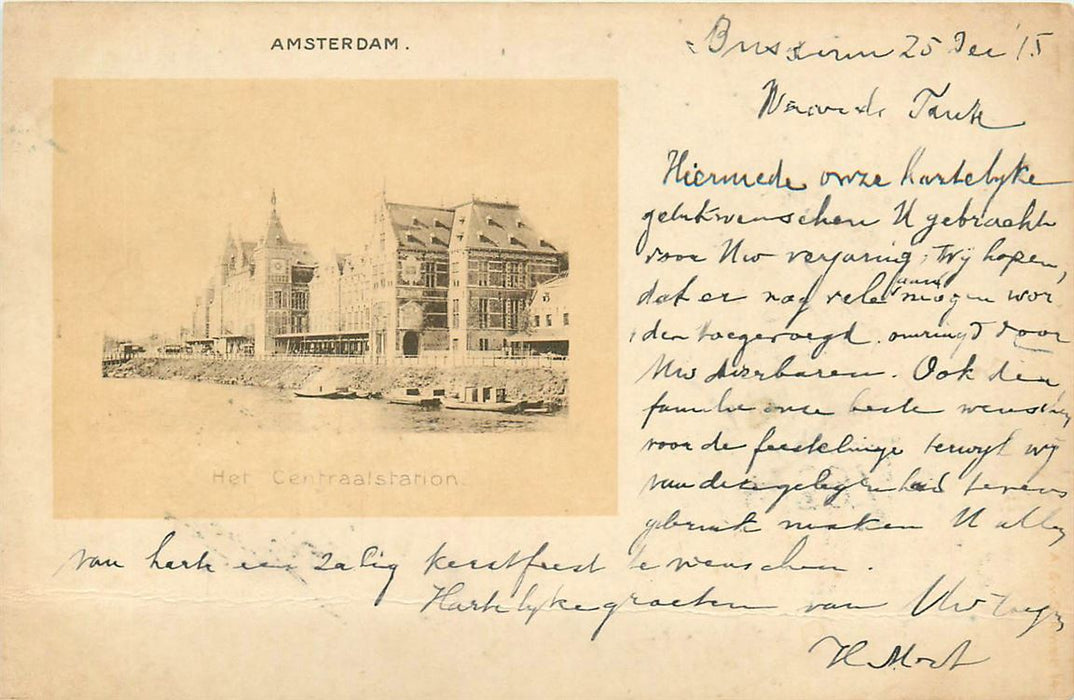 AMSTERDAM.
Bussum 25 Dec '15
Waarde Tante
Hiermede onze hartelyke
gelukwenschen U gebracht
voor Uw verjaring, Wy hopen,
dat er nog vele jaren mogen wor
den toegevoegd, omringd door
Uw dierbaren. Ook den
familie onze beste wenschen
voor de feestelinge terwyl wy
van deze gelegenheid tevens
gebruik maken U allen
van harte een zalig kerstfeest te wenschen.
Hartelyke groeten van Uw
H
Het Centraalstation.